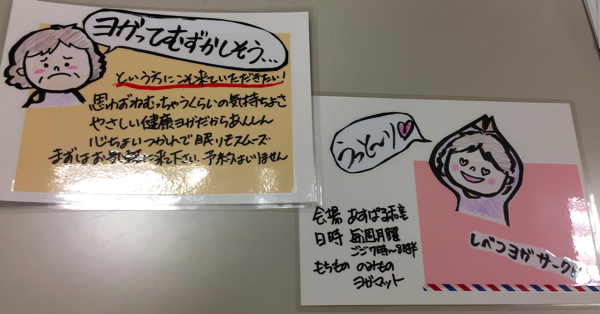 ヨガってむずかしそう…
という方にこそ来ていただきたい!
思わずねむっちゃうくらいの気持ちよさ
やさしい健康ヨガだからあんしん
心ちよいつかれで眠りもスムーズ
まずはお気軽に来て下さい。予約はいりません
うっと〜り♡
会場 あすぱる
日時 毎週月曜
ごご7時〜8時半
もちもの のみもの
ヨガマット
しべつヨガサークル